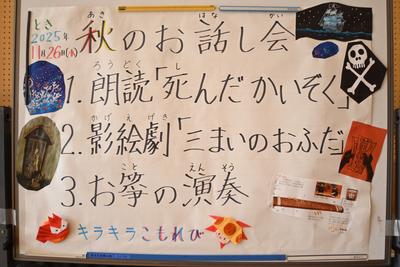 とき
2025年
11月26日(水)
秋のお話し会
あき はな かい
ろうどく し
1.朗読「死んだかいぞく」
かげえげき
2.影絵劇「三まいのおふだ」
こと えんそう
3.お箏の演奏
キラキラこもれび